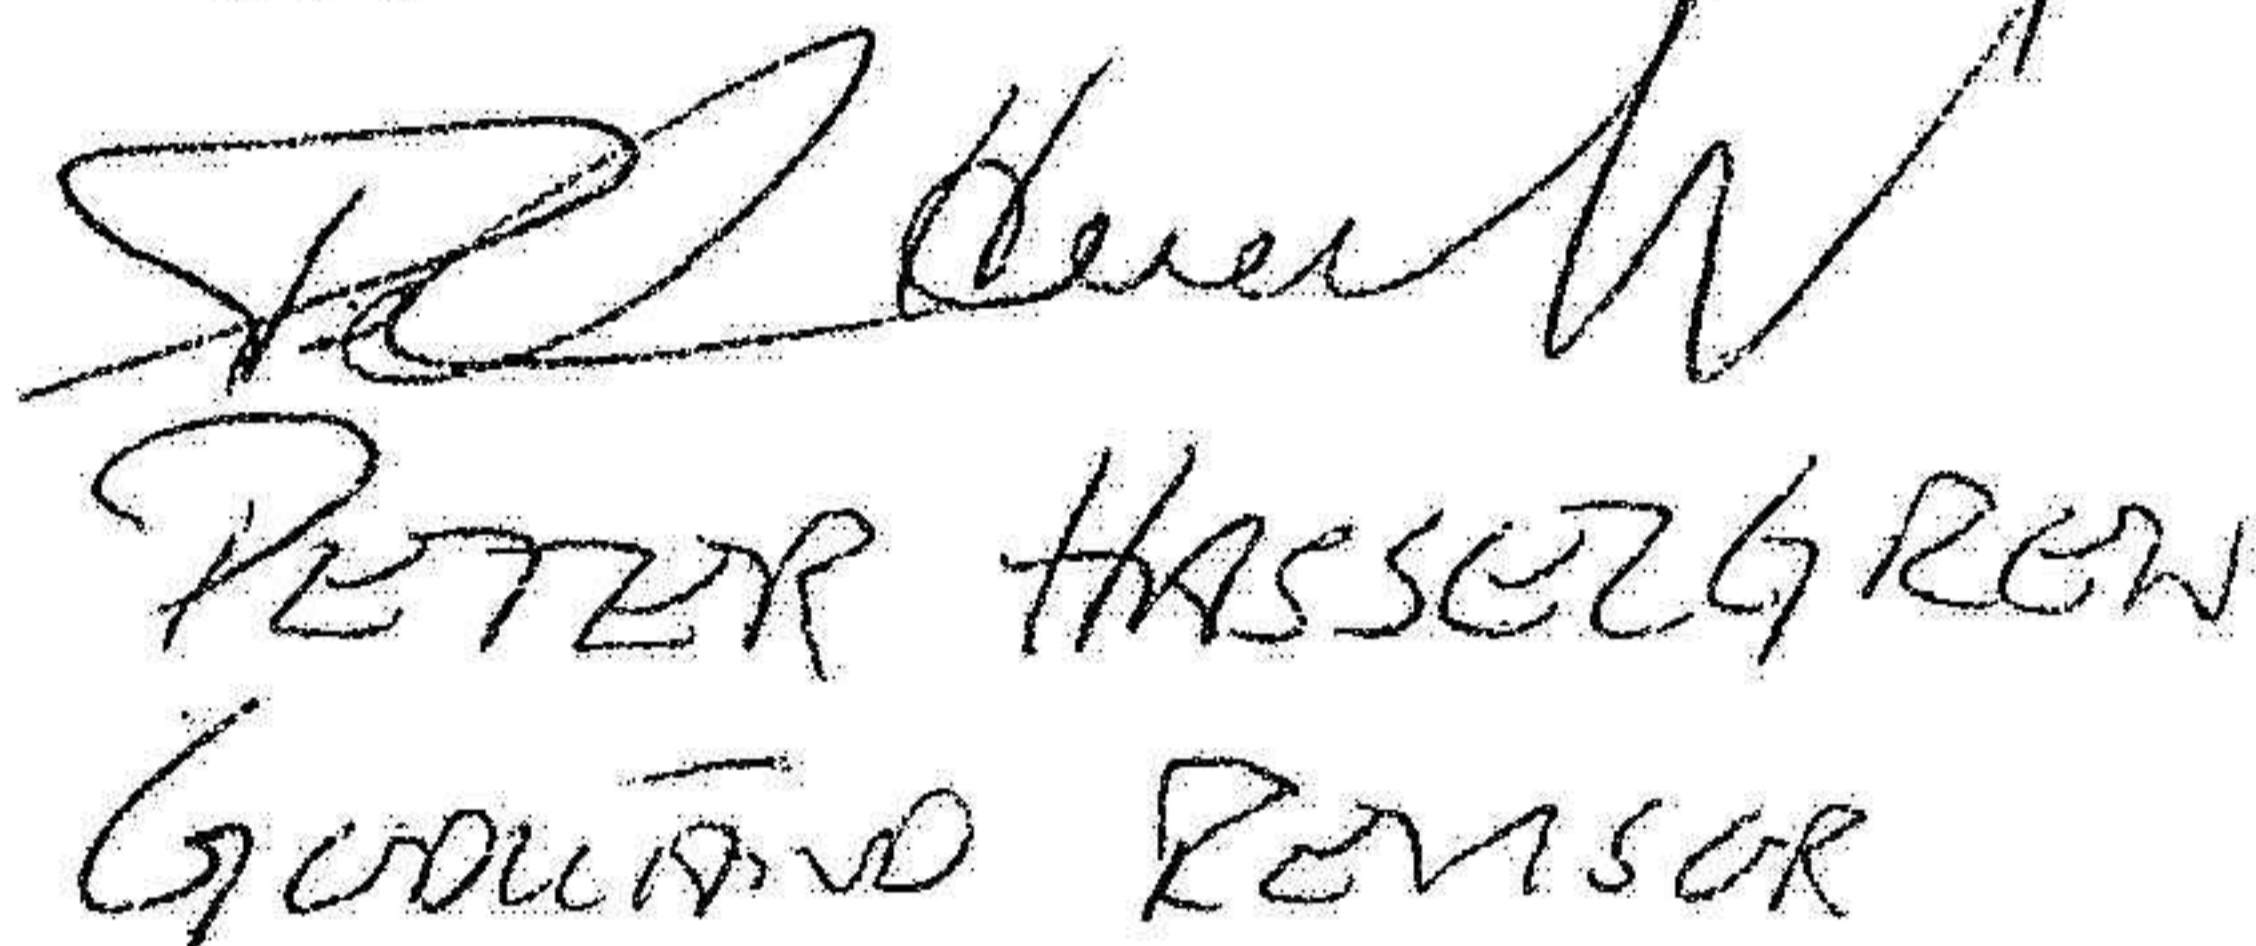 PETER HASSELGREN
GODKÄND REVISOR